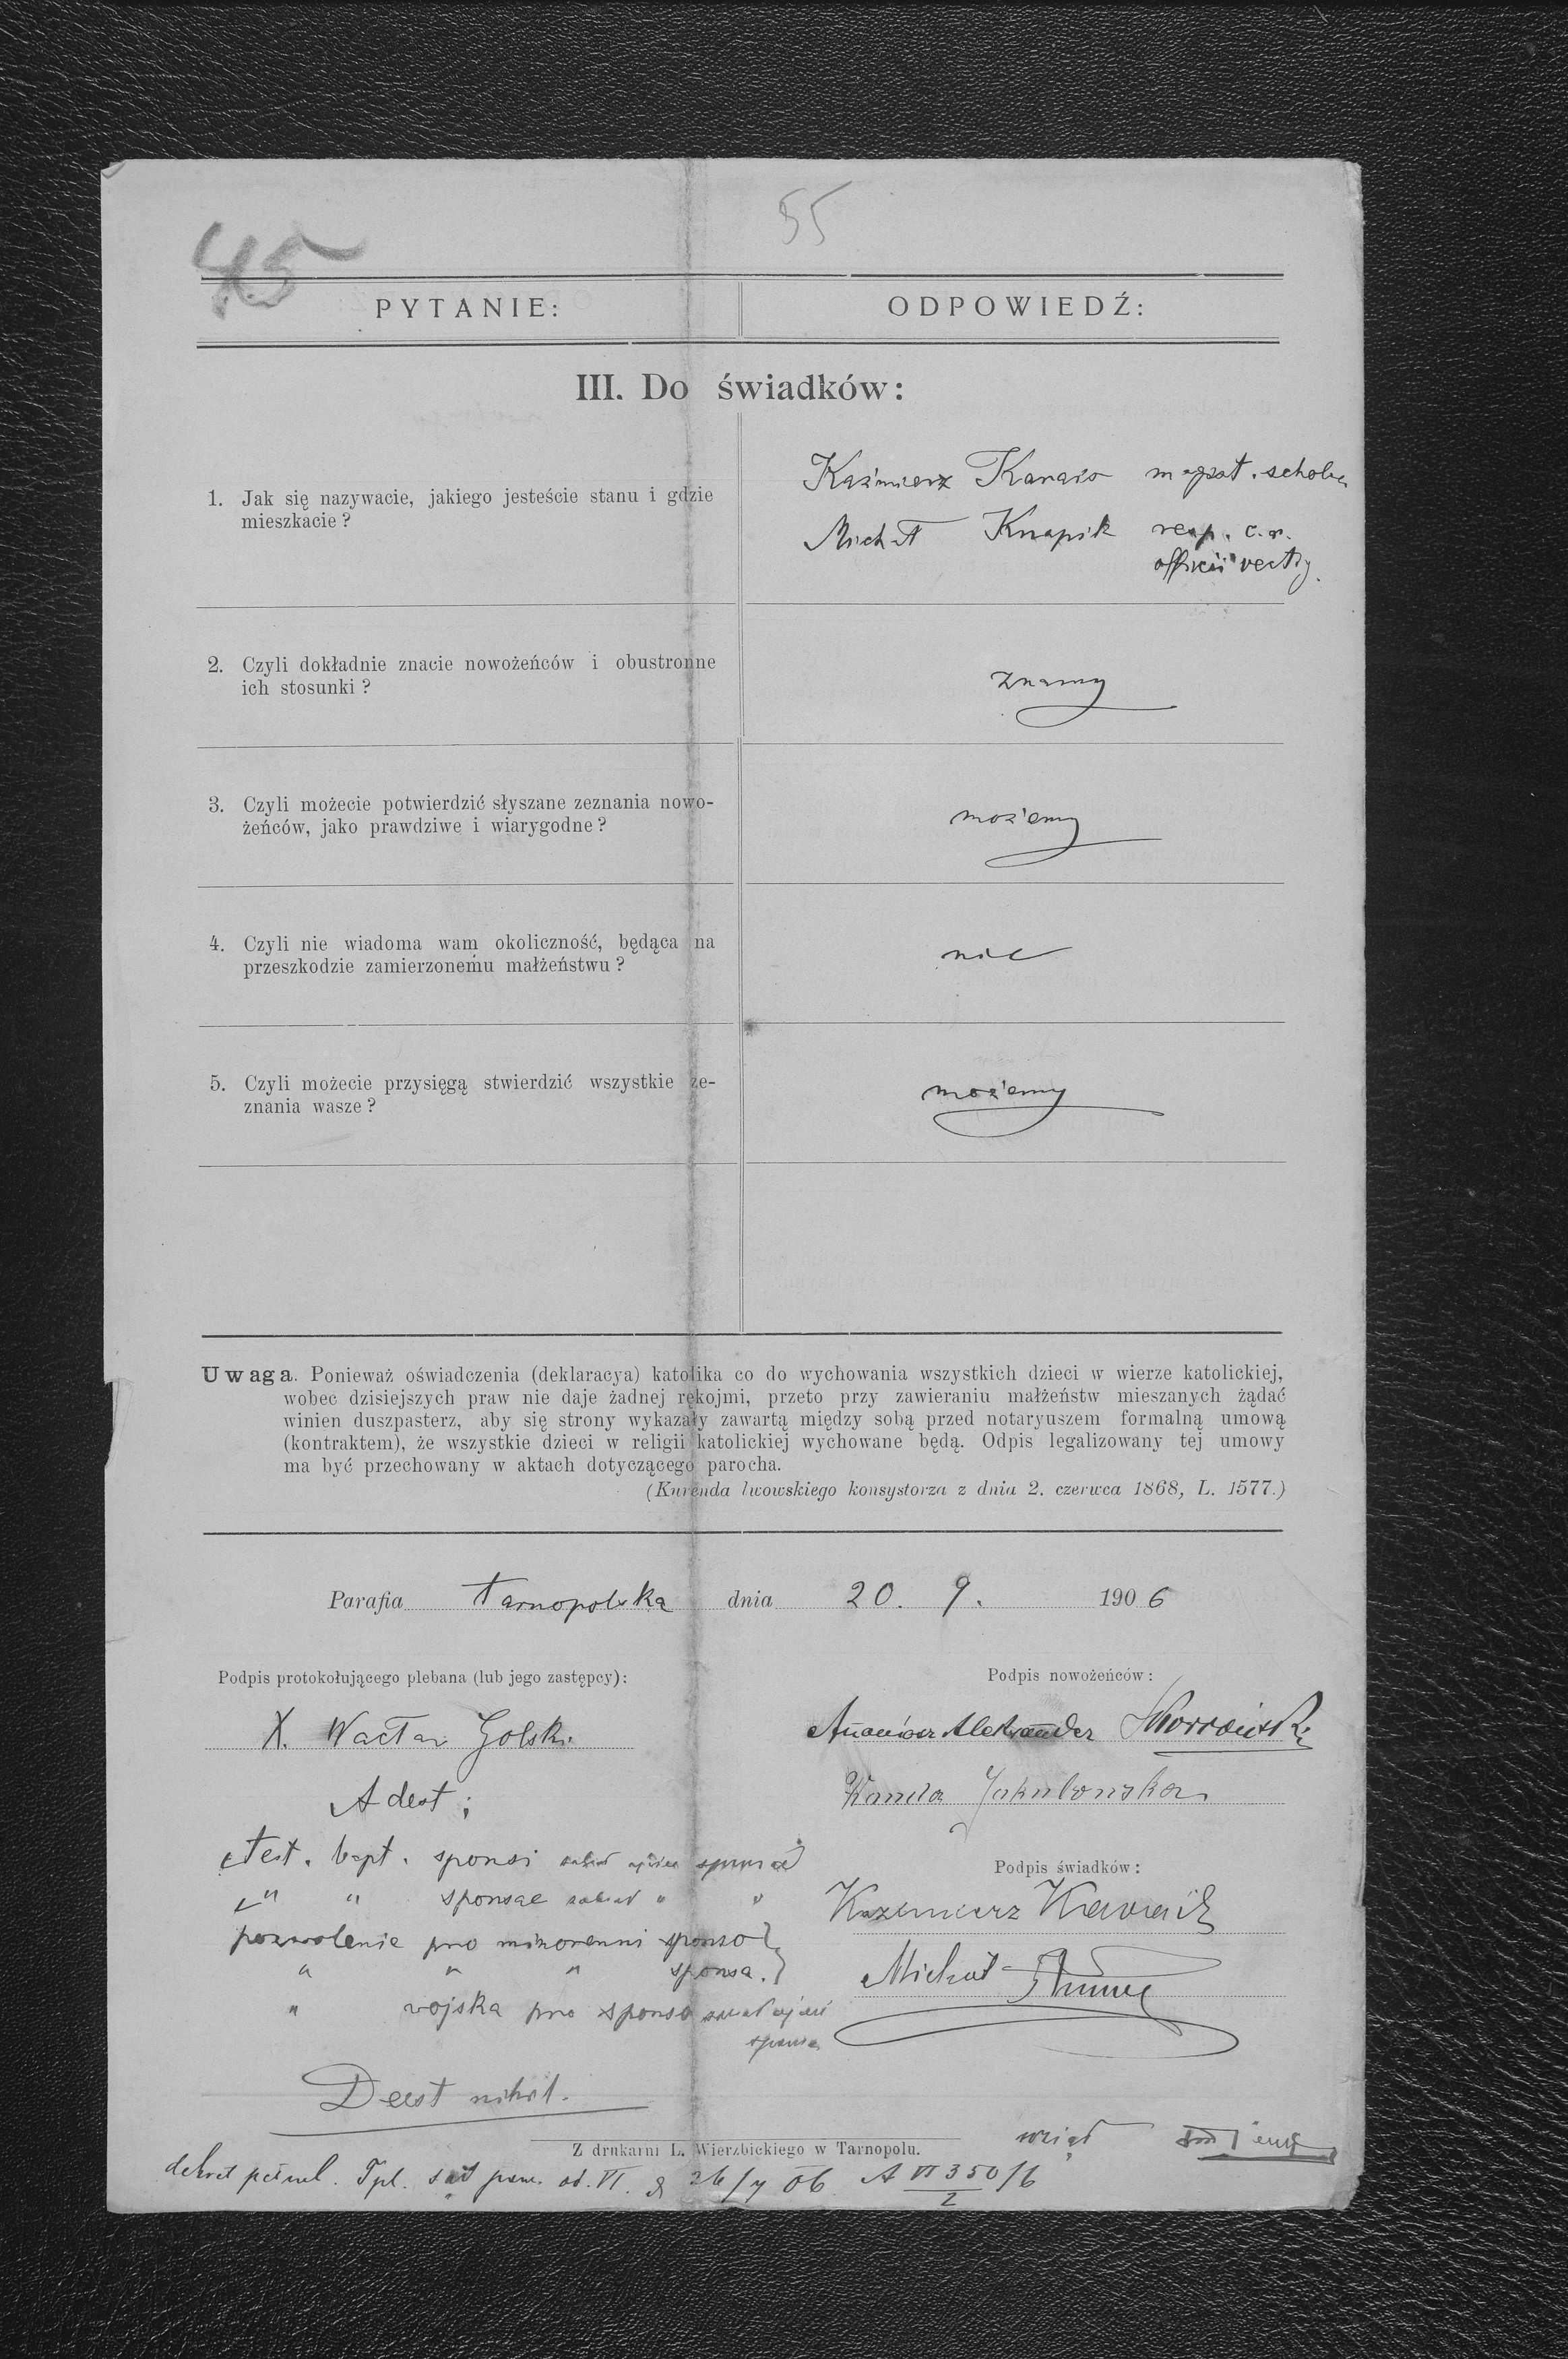 55
45
PYTANIE:
ODPOWIEDŹ:
III. Do świadków:
1. Jak się nazywacie, jakiego jesteście stanu i gdzie
mieszkacie?
Kaźmierz magist. schola
Michał Knapik resp. c. r.
officii vectig.
2. Czyli dokładnie znacie nowożeńców i obustronne
ich stosunki?
znamy
3. Czyli możecie potwierdzić słyszane zeznania nowo-
żeńców, jako prawdziwe i wiarygodne?
możemy
4. Czyli nie wiadoma wam okoliczność, będąca na
przeszkodzie zamierzonemu małżeństwu?
nie
5. Czyli możecie przysięgą stwierdzić wszystkie ze-
znania wasze?
możemy
Uwaga. Ponieważ oświadczenia (deklaracya) katolika co do wychowania wszystkich dzieci w wierze katolickiej,
wobec dzisiejszych praw nie daje żadnej rękojmi, przeto przy zawieraniu małżeństw mieszanych żądać
winien duszpasterz, aby się strony wykazały zawartą między sobą przed notaryuszem formalną umową
(kontraktem), że wszystkie dzieci w religii katolickiej wychowane będą. Odpis legalizowany tej umowy
ma być przechowany w aktach dotyczącego parocha.
(Kurenda lwowskiego konsystorza z dnia 2. czerwca 1868, L. 1577.)
Parafia Tarnopolska dnia 20. 9. 1906
Podpis protokołującego plebana (lub jego zastępcy):
X. Wacław Golski
Adest:
Test. bapt. sponsi
" " sponsae
pozwolenie pro minorenni sponso
" " " sponsa.
" wojska pro sponso
Deest nihil.
Podpis nowożeńców:
Aleksander
Wanda Jakubowska
Podpis świadków:
Kazimierz
Michał
Z drukarni L. Wierzbickiego w Tarnopolu.
wziął
dekret Tpl. od. VI. 26/7 06 A VI 350/6
2